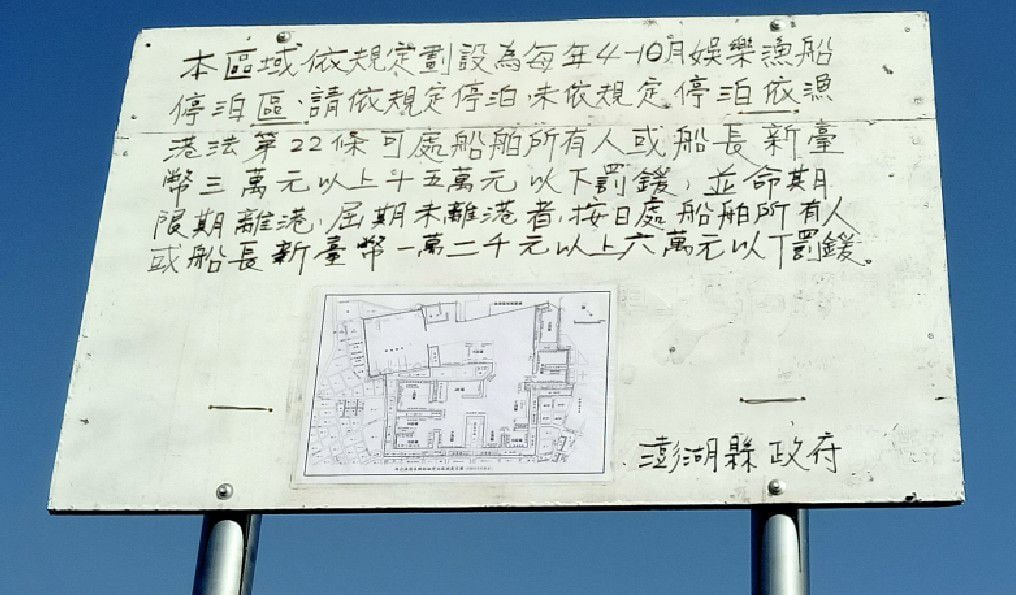 本區域依規定劃設為每年4-10月娛樂漁船
停泊區,請依規定停泊,未依規定停泊依漁
港法第22條可處船舶所有人或船長新臺
幣三萬元以上十五萬元以下罰鍰,並命期
限期離港,屆期未離港者,按日處船舶所有人
或船長新臺幣一萬二千元以上六萬元以下罰鍰。
澎湖縣政府